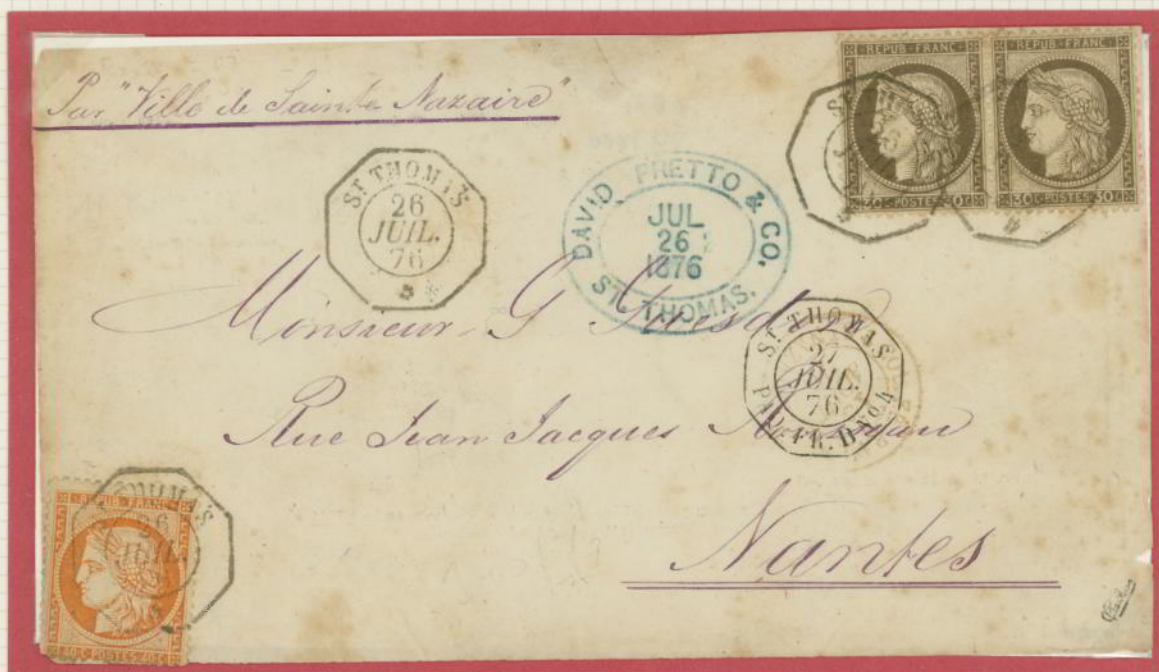 Par "Ville de Sainte Nazaire"
REPUB·FRANC
30 C·POSTES·30 C
REPUB·FRANC
30 C·POSTES·30 C
ST THOMAS
26
JUIL.
76
DAVID PRETTO & CO.
JUL
26
1876
ST. THOMAS.
Monsieur G
ST THOMAS
27
JUIL.
76
PAQ. FR. D No. 4
Rue Jean Jacques
Nantes
REPUB·FRANC
40 C·POSTES·40 C
26
JUIL.